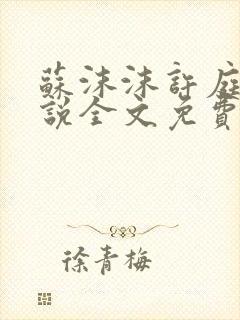 蘇沫沫許庭
說全文免費
徐青梅